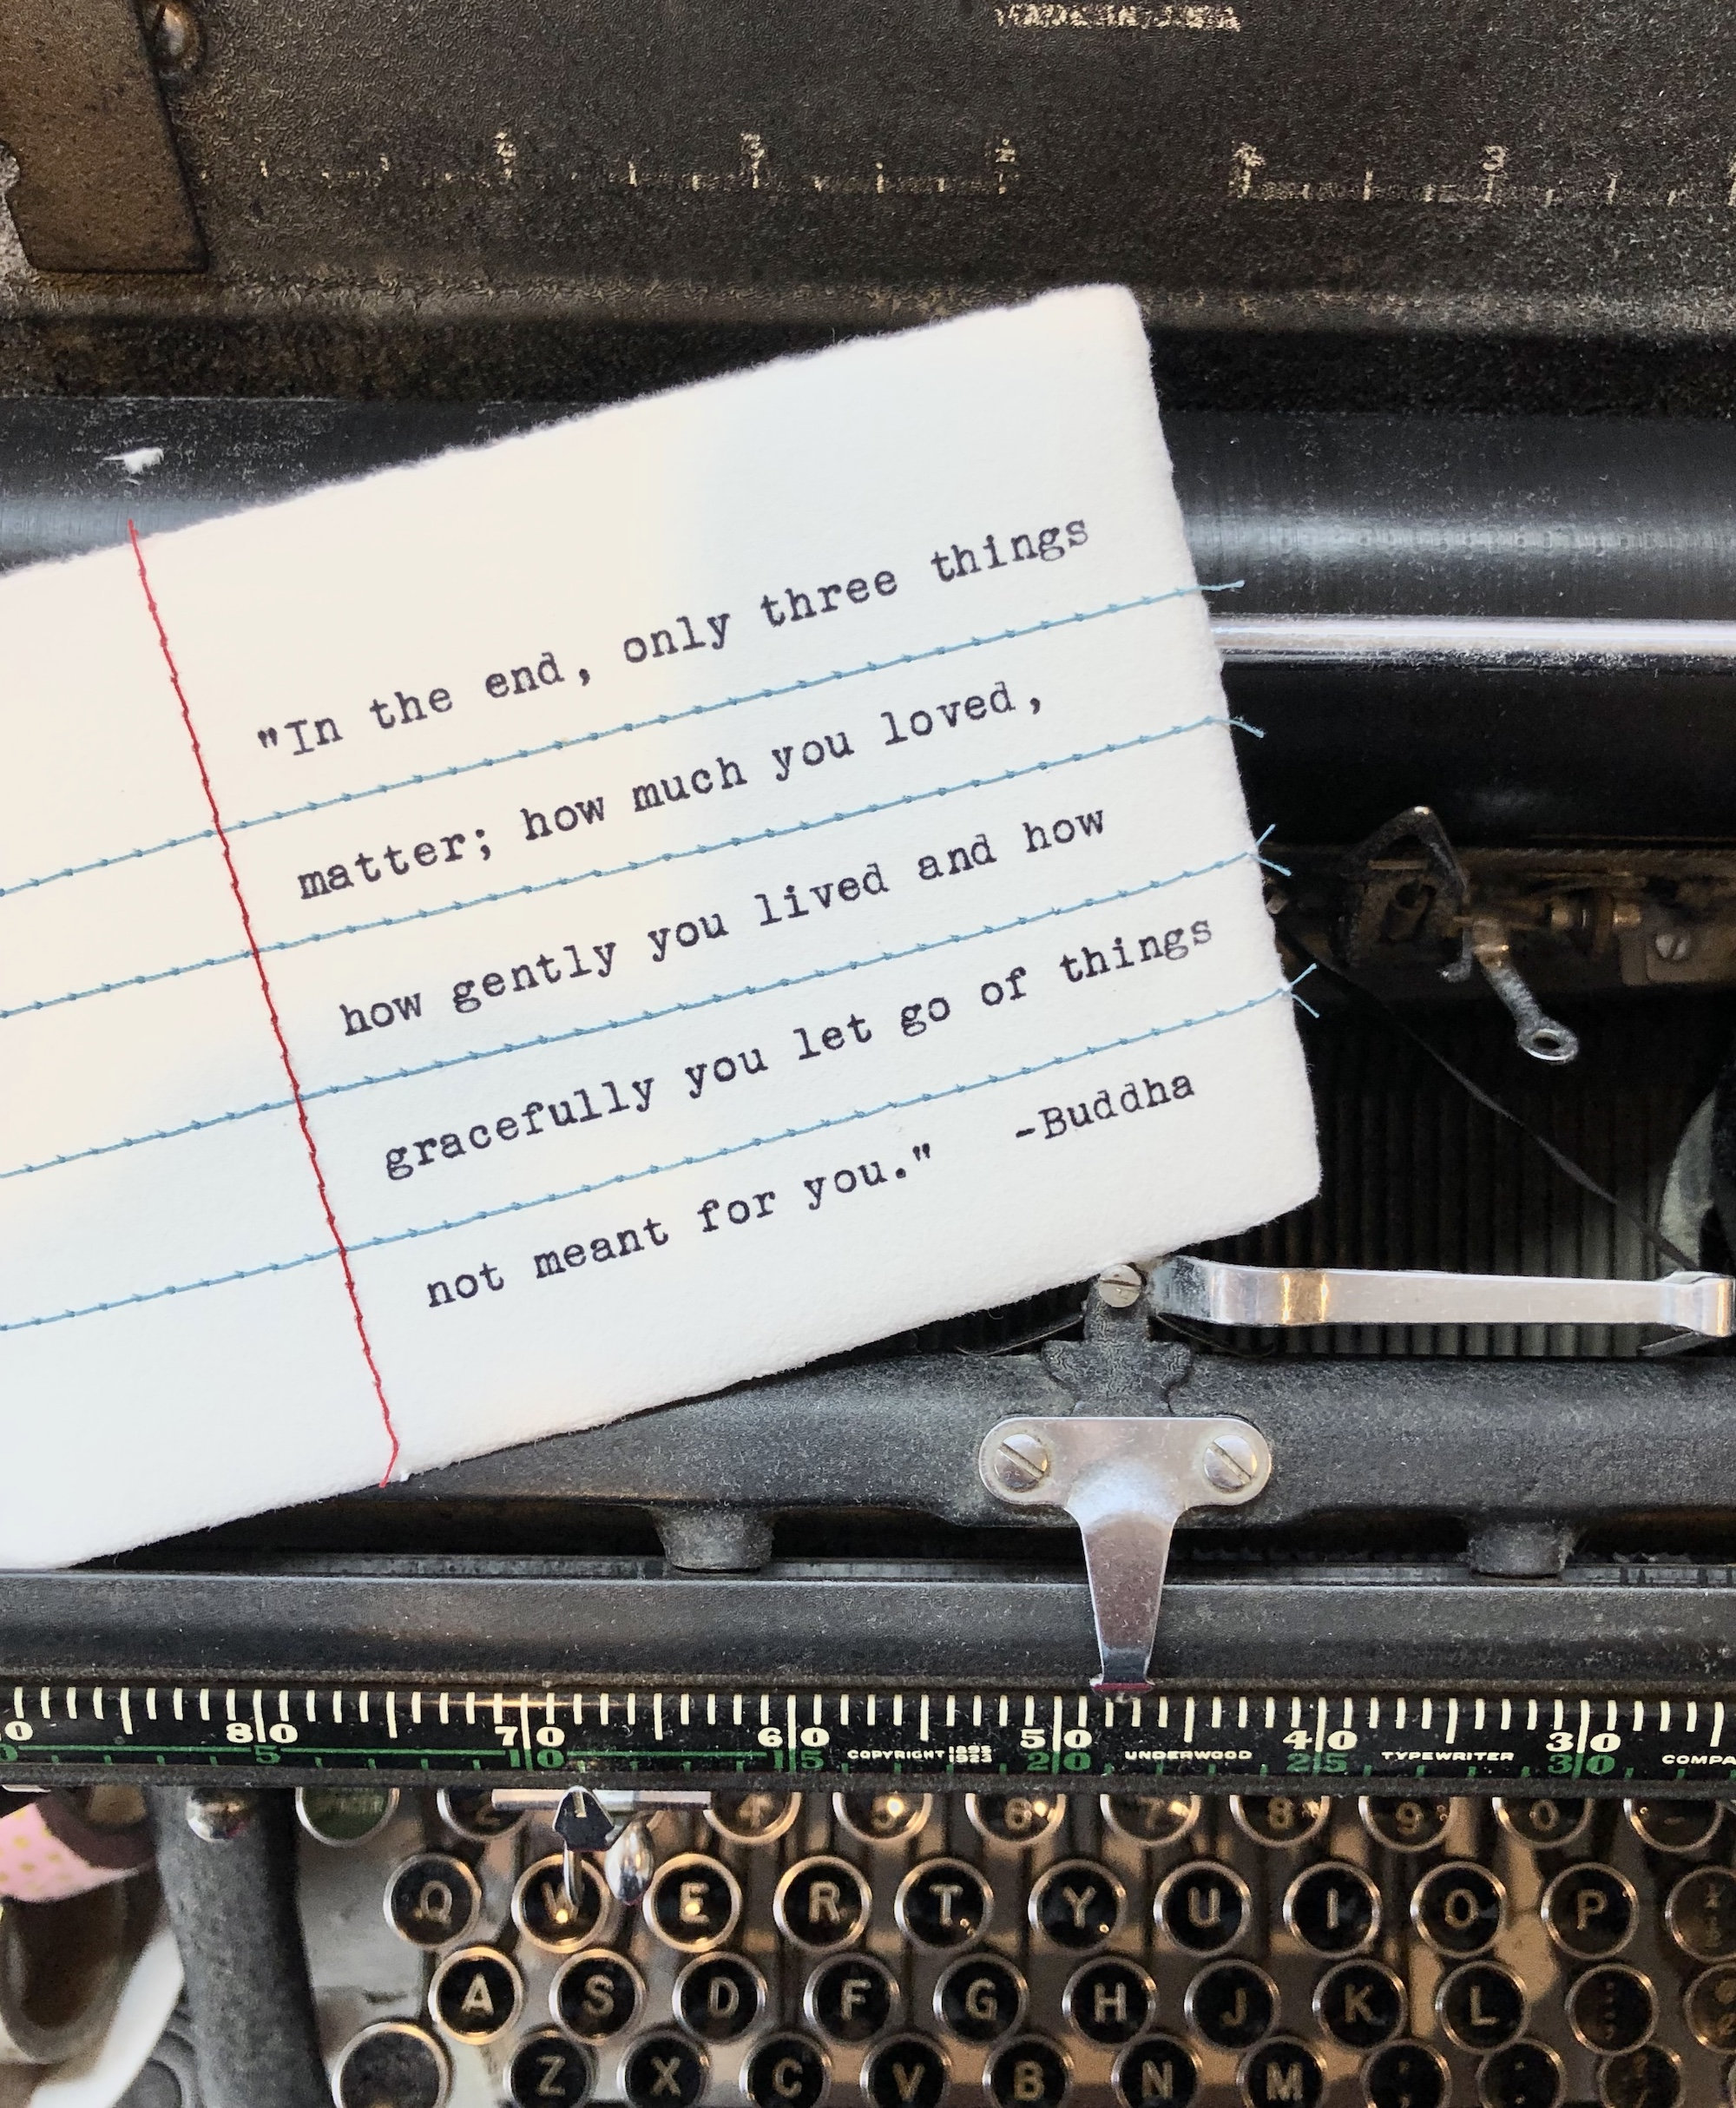 "In the end, only three things
matter; how much you loved,
how gently you lived and how
gracefully you let go of things
not meant for you."   -Buddha
4 3 2
4 3
0 80 70 60 50 40 30
5 10 15 COPYRIGHT UNDERWOOD TYPEWRITER COMPA
20 25 30
2 4 5 6 7 8 9 0 -
Q W E R T Y U I O P
A S D F G H J K L
Z X C V B N M